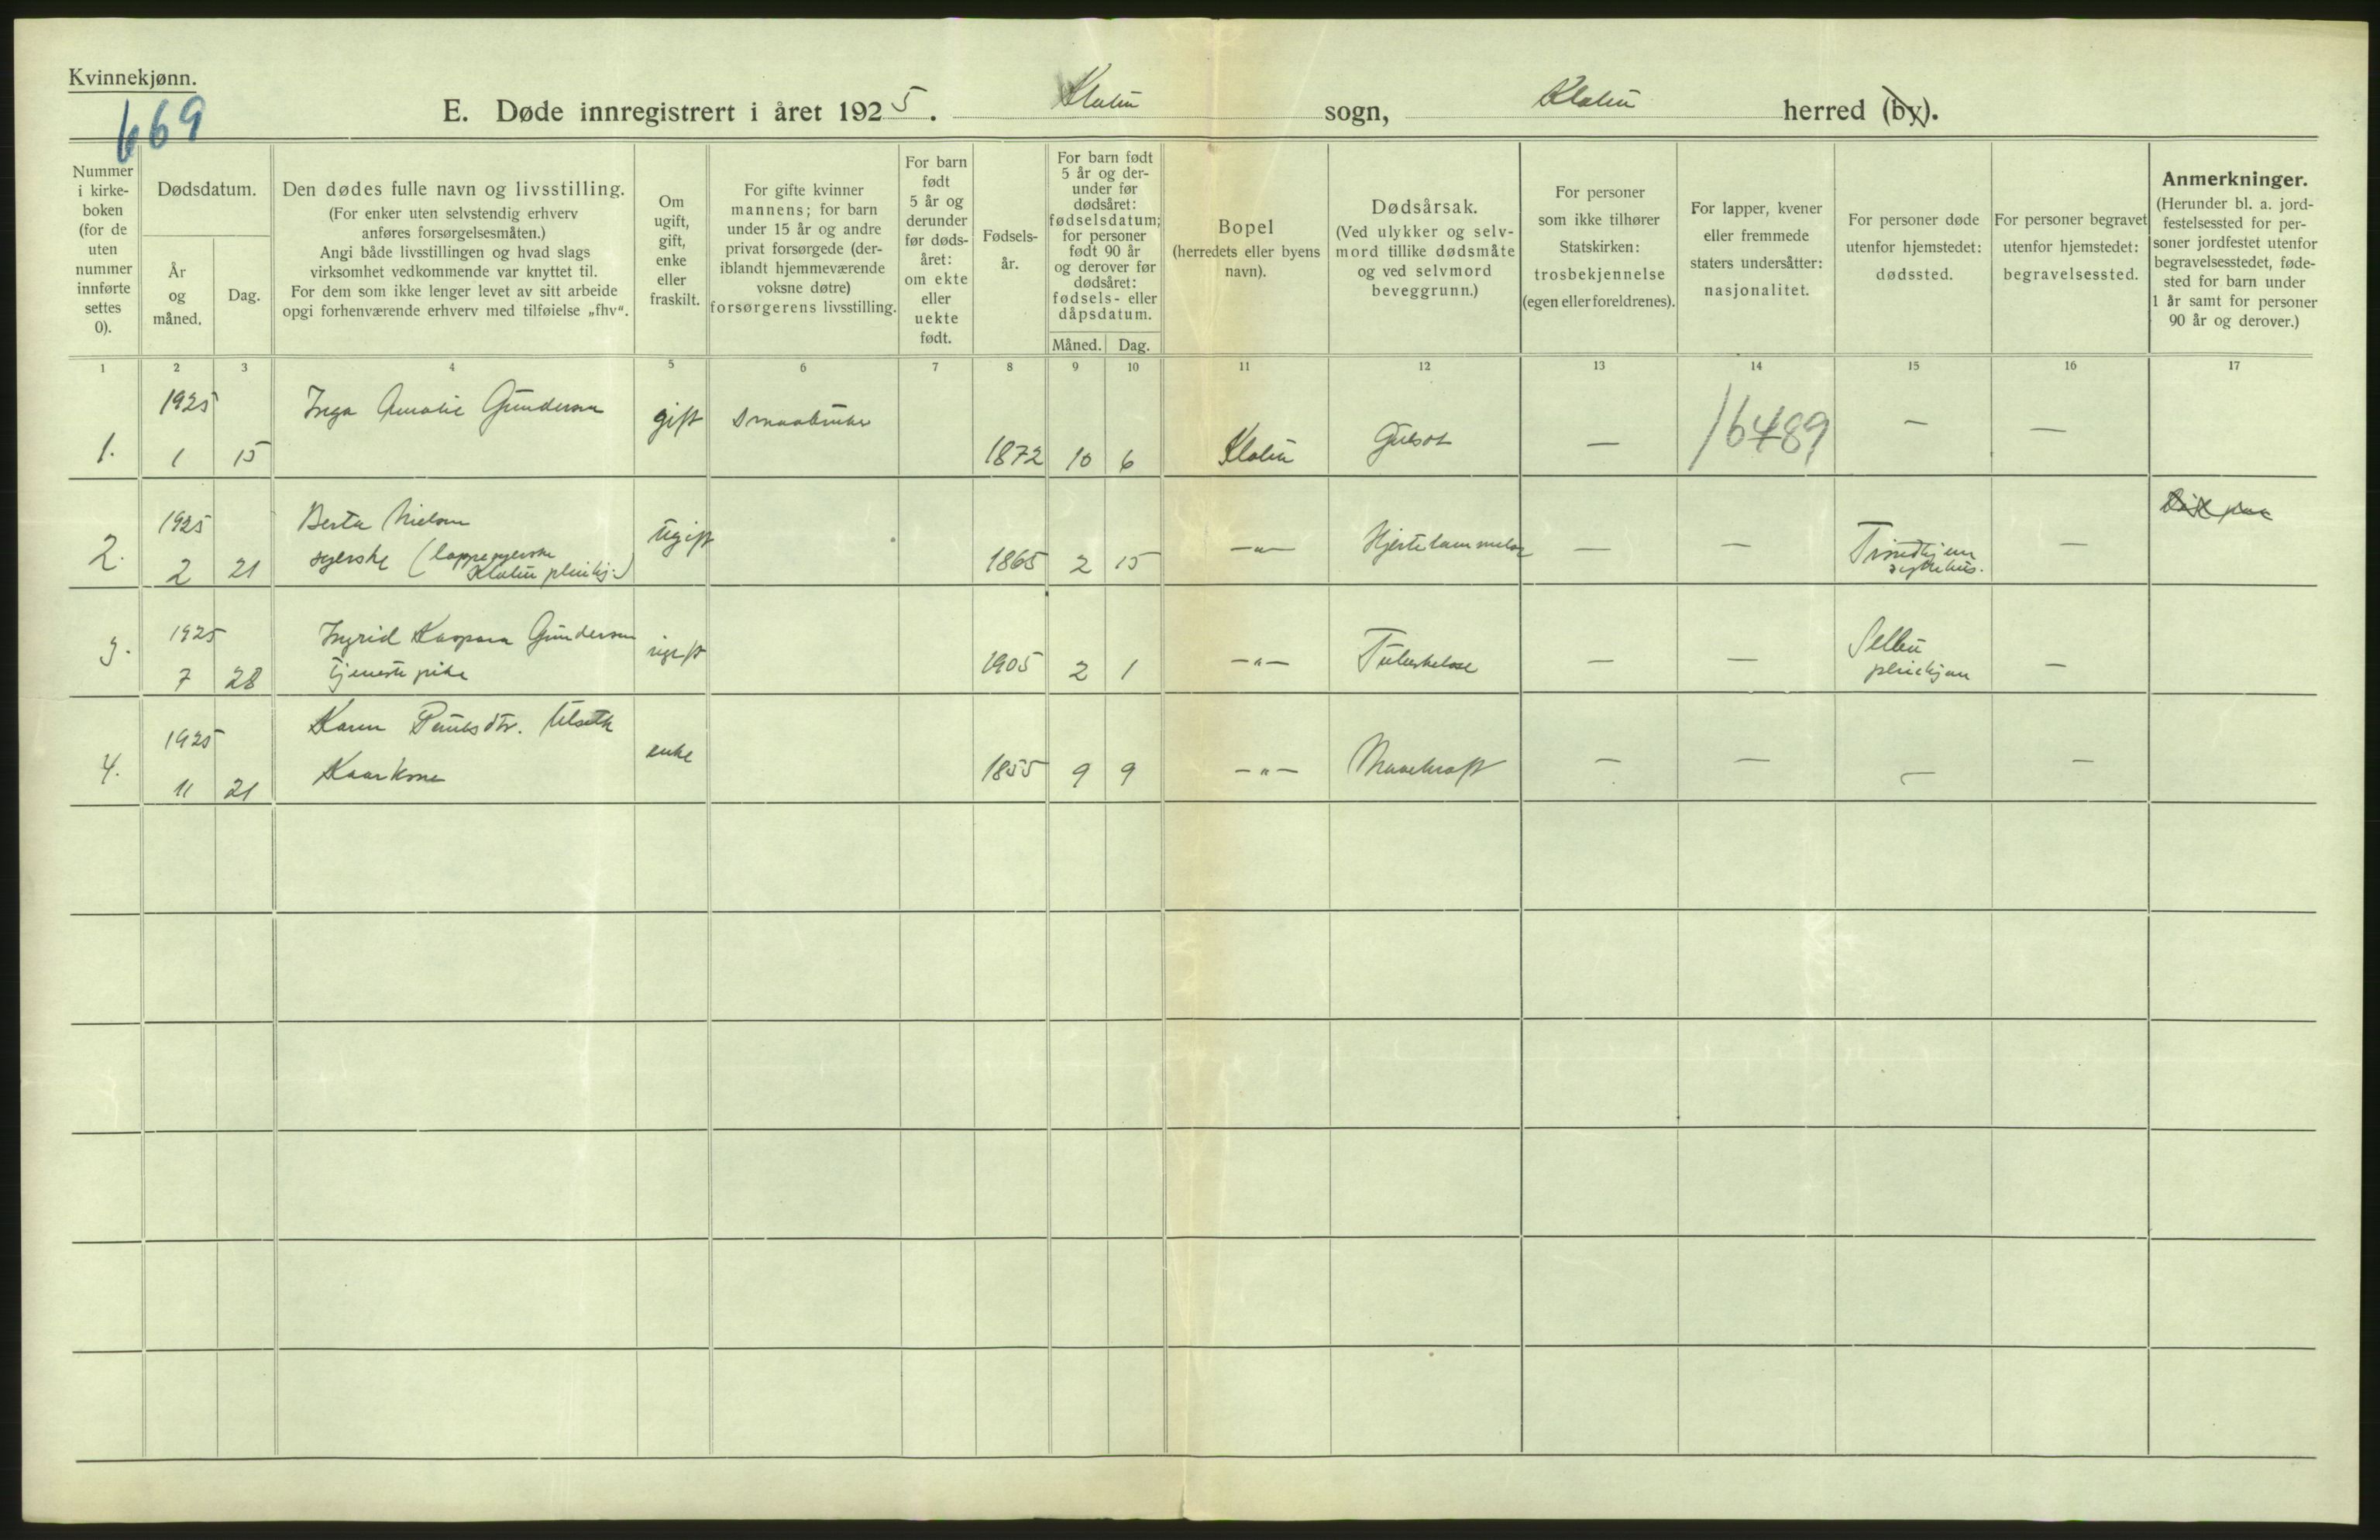 Kvinnekjønn.
669
E. Døde innregistrert i året 1925. Klæbu sogn, Klæbu herred (by).
Nummer
i kirke-
boken
(for de
uten
nummer
innførte
settes
0).
Dødsdatum.
År
og
måned.
Dag.
Den dødes fulle navn og livsstilling.
(For enker uten selvstendig erhverv
anføres forsørgelsesmåten.)
Angi både livsstillingen og hvad slags
virksomhet vedkommende var knyttet til.
For dem som ikke lenger levet av sitt arbeide
opgi forhenværende erhverv med tilføielse „fhv“.
Om
ugift,
gift,
enke
eller
fraskilt.
For gifte kvinner
mannens; for barn
under 15 år og andre
privat forsørgede (der-
iblandt hjemmeværende
voksne døtre)
forsørgerens livsstilling.
For barn
født
5 år og
derunder
før døds-
året:
om ekte
eller
uekte
født.
Fødsels-
år.
For barn født
5 år og der-
under før
dødsåret:
fødselsdatum;
for personer
født 90 år
og derover før
dødsåret:
fødsels- eller
dåpsdatum.
Måned. Dag.
Bopel
(herredets eller byens
navn).
Dødsårsak.
(Ved ulykker og selv-
mord tillike dødsmåte
og ved selvmord
beveggrunn.)
For personer
som ikke tilhører
Statskirken:
trosbekjennelse
(egen eller foreldrenes).
For lapper, kvener
eller fremmede
staters undersåtter:
nasjonalitet.
For personer døde
utenfor hjemstedet:
dødssted.
For personer begravet
utenfor hjemstedet:
begravelsessted.
Anmerkninger.
(Herunder bl. a. jord-
festelsessted for per-
soner jordfestet utenfor
begravelsesstedet, føde-
sted for barn under
1 år samt for personer
90 år og derover.)
1 2 3 4 5 6 7 8 9 10 11 12 13 14 15 16 17
1925 Inga Amalie Gundersen
1. 1 15 gift Smaabruker 1872 10 6 Klæbu Gulsot — 16489 — —
1925 Berta Nielsen
2. 2 21 syerske (lappesyerske
Klæbu pleiehj.) ugift 1865 2 15 —"— Hjertelammelse — — Trondhjem
sykehus. —
1925 Ingrid Kaspara Gundersen
3. 7 28 tjenestepike ugift 1905 2 1 —"— Tuberkelose — — Selbu
pleiehjem —
1925 Karen Paulsdtr. Ulseth
4. 11 21 Kaarkone enke 1855 9 9 —"— Mavekræft — — — —